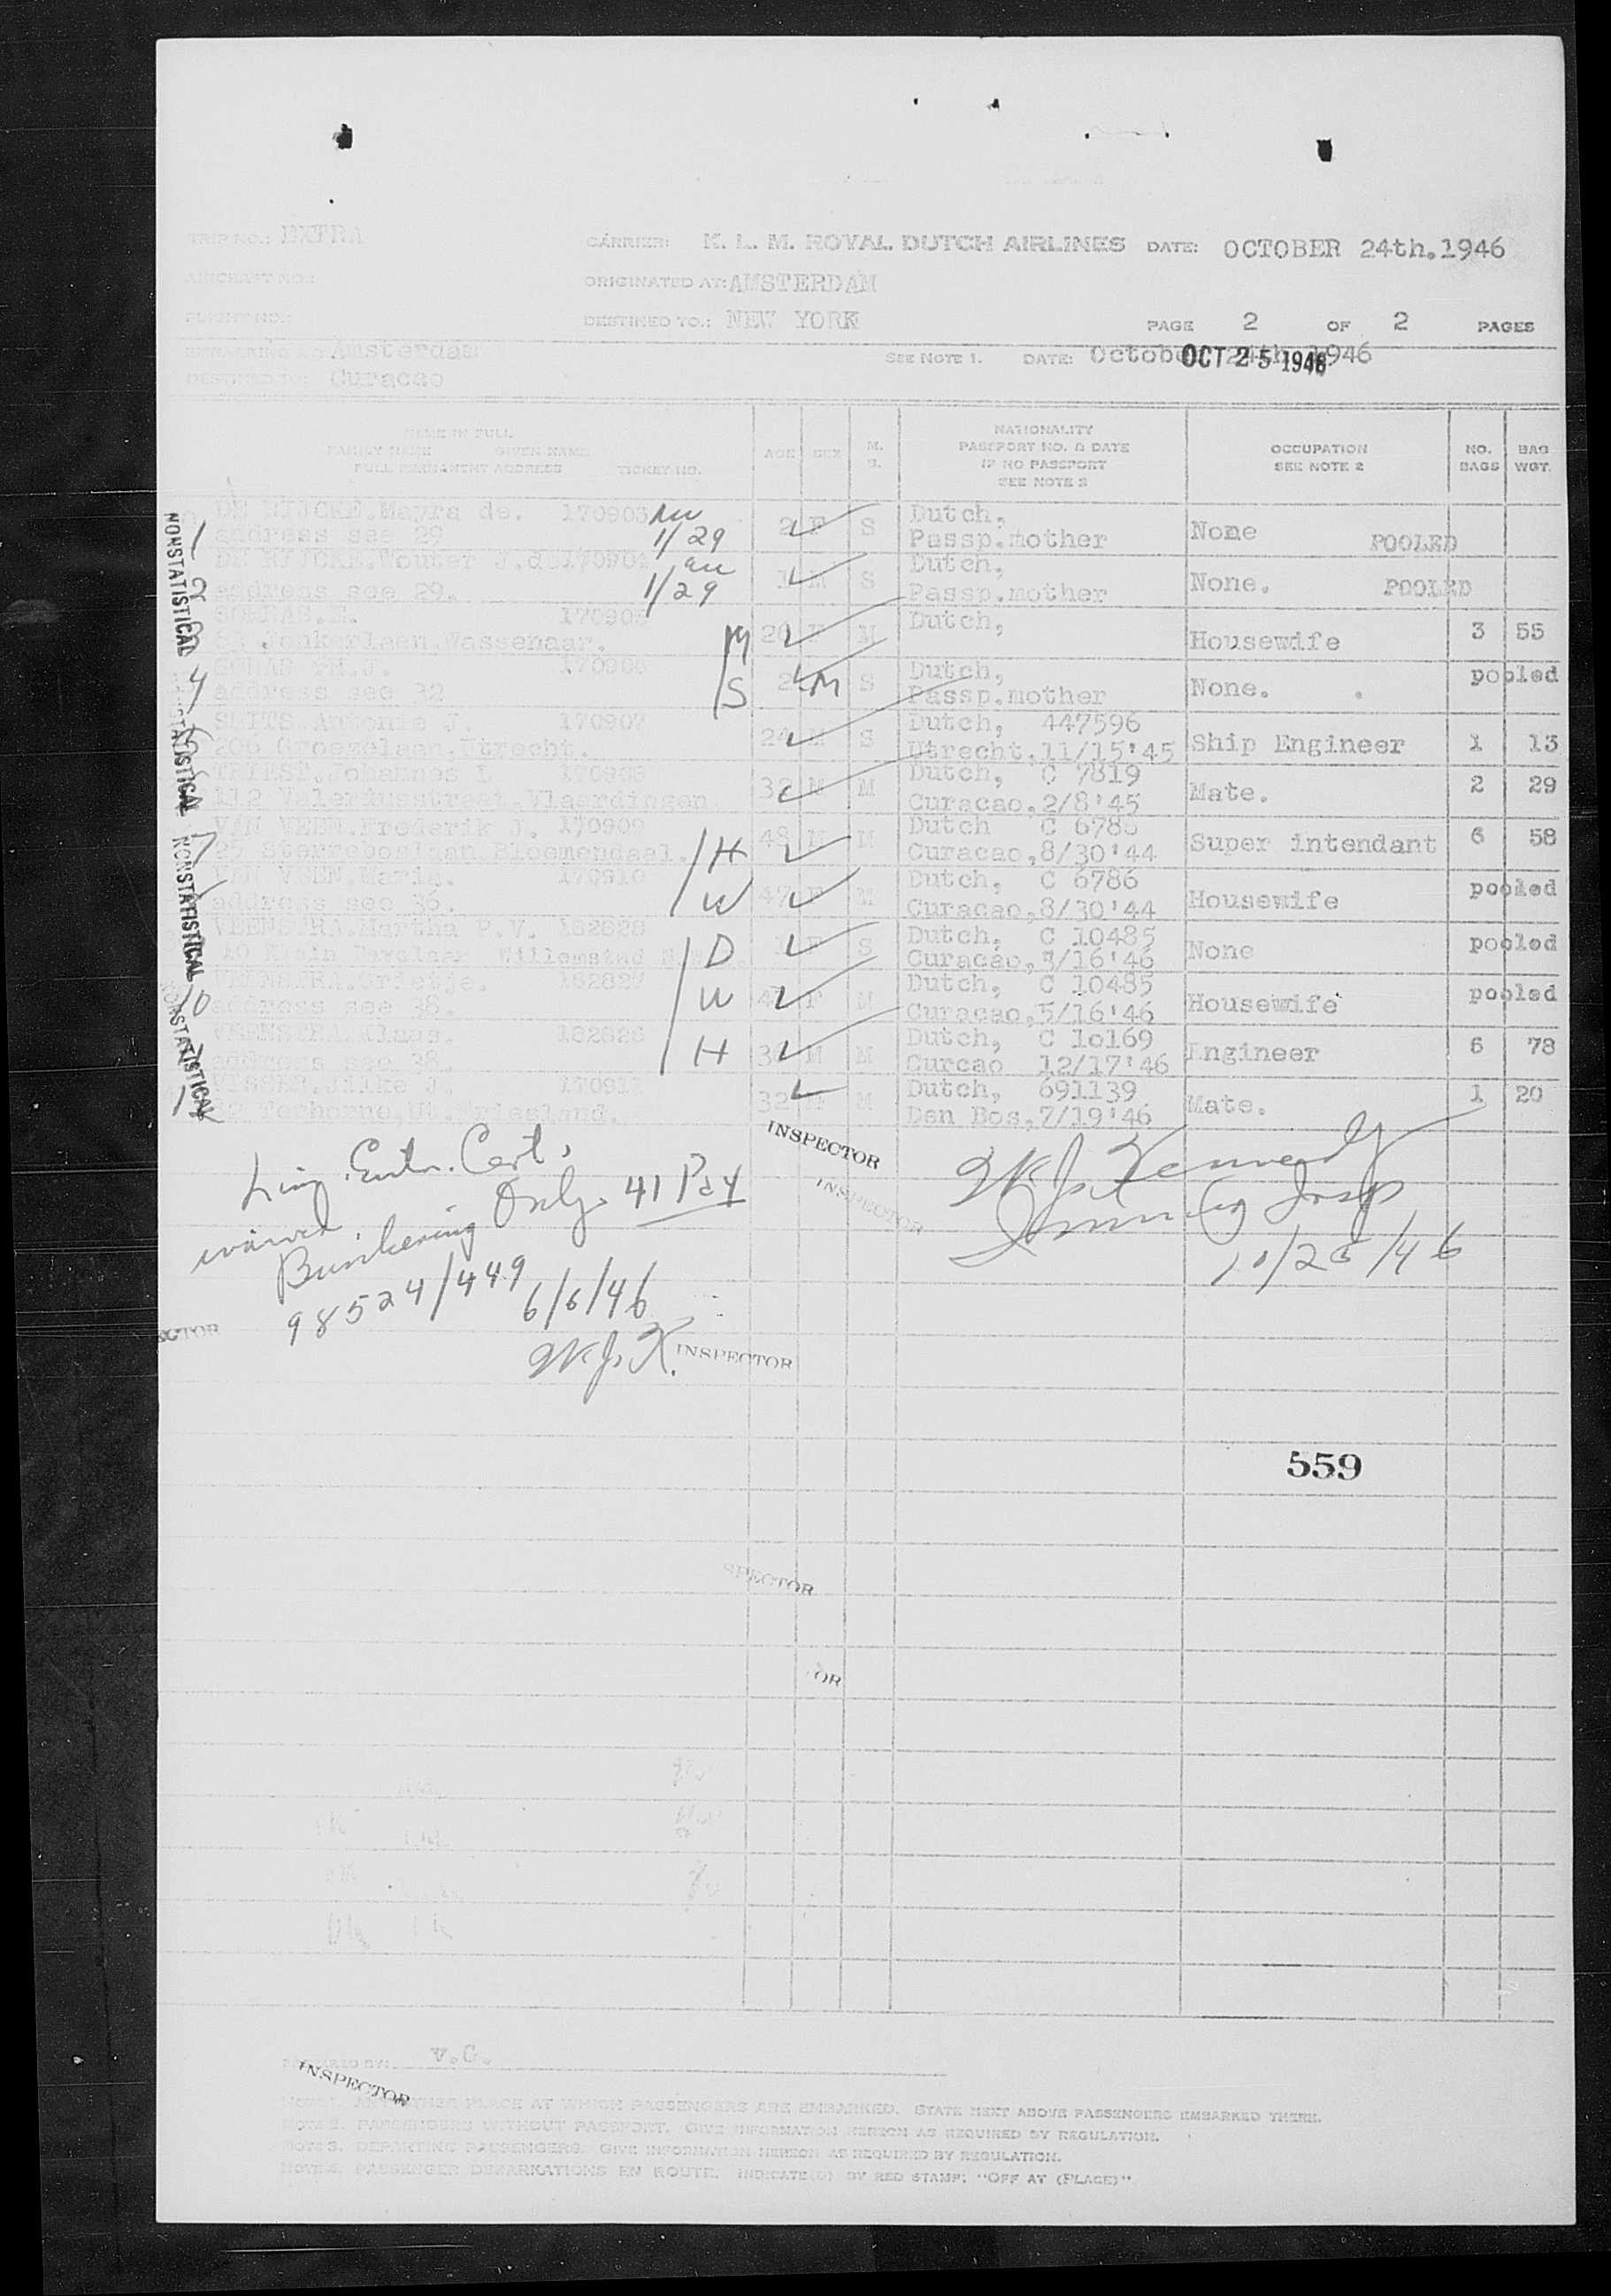 TRIP NO.: EXTRA CARRIER: K. L. M. ROYAL DUTCH AIRLINES DATE: OCTOBER 24th.1946
AIRCRAFT NO.: ORIGINATED AT: AMSTERDAM
FLIGHT NO.: DESTINED TO.: NEW YORK PAGE 2 OF 2 PAGES
EMBARKING AT Amsterdam SEE NOTE 1. DATE: October 24th 1946 OCT 25 1946
DESTINED TO: Curacao
NAME IN FULL
FAMILY NAME GIVEN NAME
FULL PERMANENT ADDRESS TICKET NO.
AGE SEX M. S.
NATIONALITY
PASSPORT NO. & DATE
IF NO PASSPORT
SEE NOTE 2
OCCUPATION
SEE NOTE 2
NO. BAGS
BAG WGT.
DE RIJCKE.Mayra de. 170903 2 F S Dutch,
address see 29 1/29 Passp.mother None POOLED
DE RIJCKE.Wouter J.de 170904 M S Dutch,
address see 29. 1/29 Passp.mother None. POOLED
170905 M 26 M Dutch,
Jonkerlaan.Wassenaar. Housewife 3 55
170906 2 M S Dutch, pooled
address see 32 S Passp.mother None.
SMITS Antonie J. 170907 24 S Dutch, 447596
206 Groeselaan.Utrecht. Utrecht,11/15'45 Ship Engineer 1 13
Johannes L 32 M M Dutch, C 7819
112 Valeriusstraat.Vlaardingen. Curacao,2/8'45 Mate. 2 29
VAN VEEN.Frederik J. 170909 H 48 M M Dutch
Bloemendaal. Curacao,8/30'44 Super intendant 6 58
VAN VEEN.Marie. 170910 W 47 F M Dutch, C 6786
address see 36. Curacao,8/30'44 Housewife pooled
VEENSTRA.Martha P.V. 182828 D F S Dutch, C 10485
Willemstad Curacao, /16'46 None pooled
VEENSTRA.Grietje. W F M Dutch, C 10485
address see 38. Curacao,5/16'46 Housewife pooled
VEENSTRA.Klaas. 182826 H M M Dutch, C 10169
address see 38 Curcao 12/17'46 Engineer 6 78
VISSER.Jilke J. 32 M M Dutch, 691139
Terhorne,Ut.Friesland. Den Bos,7/19'46 Mate. 1 20
NONSTATISTICAL
NONSTATISTICAL
NONSTATISTICAL
NONSTATISTICAL
INSPECTOR
INSPECTOR
Cert.
waived
Bunkering Only. 41 Pay
98524/449 6/6/46
W.J.K. INSPECTOR
W.J. Kennedy
10/25/46
559
SPECTOR
OR
PREPARED BY: v.G.
INSPECTOR
NOTE 1. ANY OTHER PLACE AT WHICH PASSENGERS ARE EMBARKED. STATE NEXT ABOVE PASSENGERS EMBARKED THERE.
NOTE 2. PASSENGERS WITHOUT PASSPORT. GIVE INFORMATION HEREON AS REQUIRED BY REGULATION.
NOTE 3. DEPARTING PASSENGERS. GIVE INFORMATION HEREON AS REQUIRED BY REGULATION.
NOTE 4. PASSENGER DEBARKATIONS EN ROUTE. INDICATE(D) BY RED STAMP: "OFF AT (PLACE)"